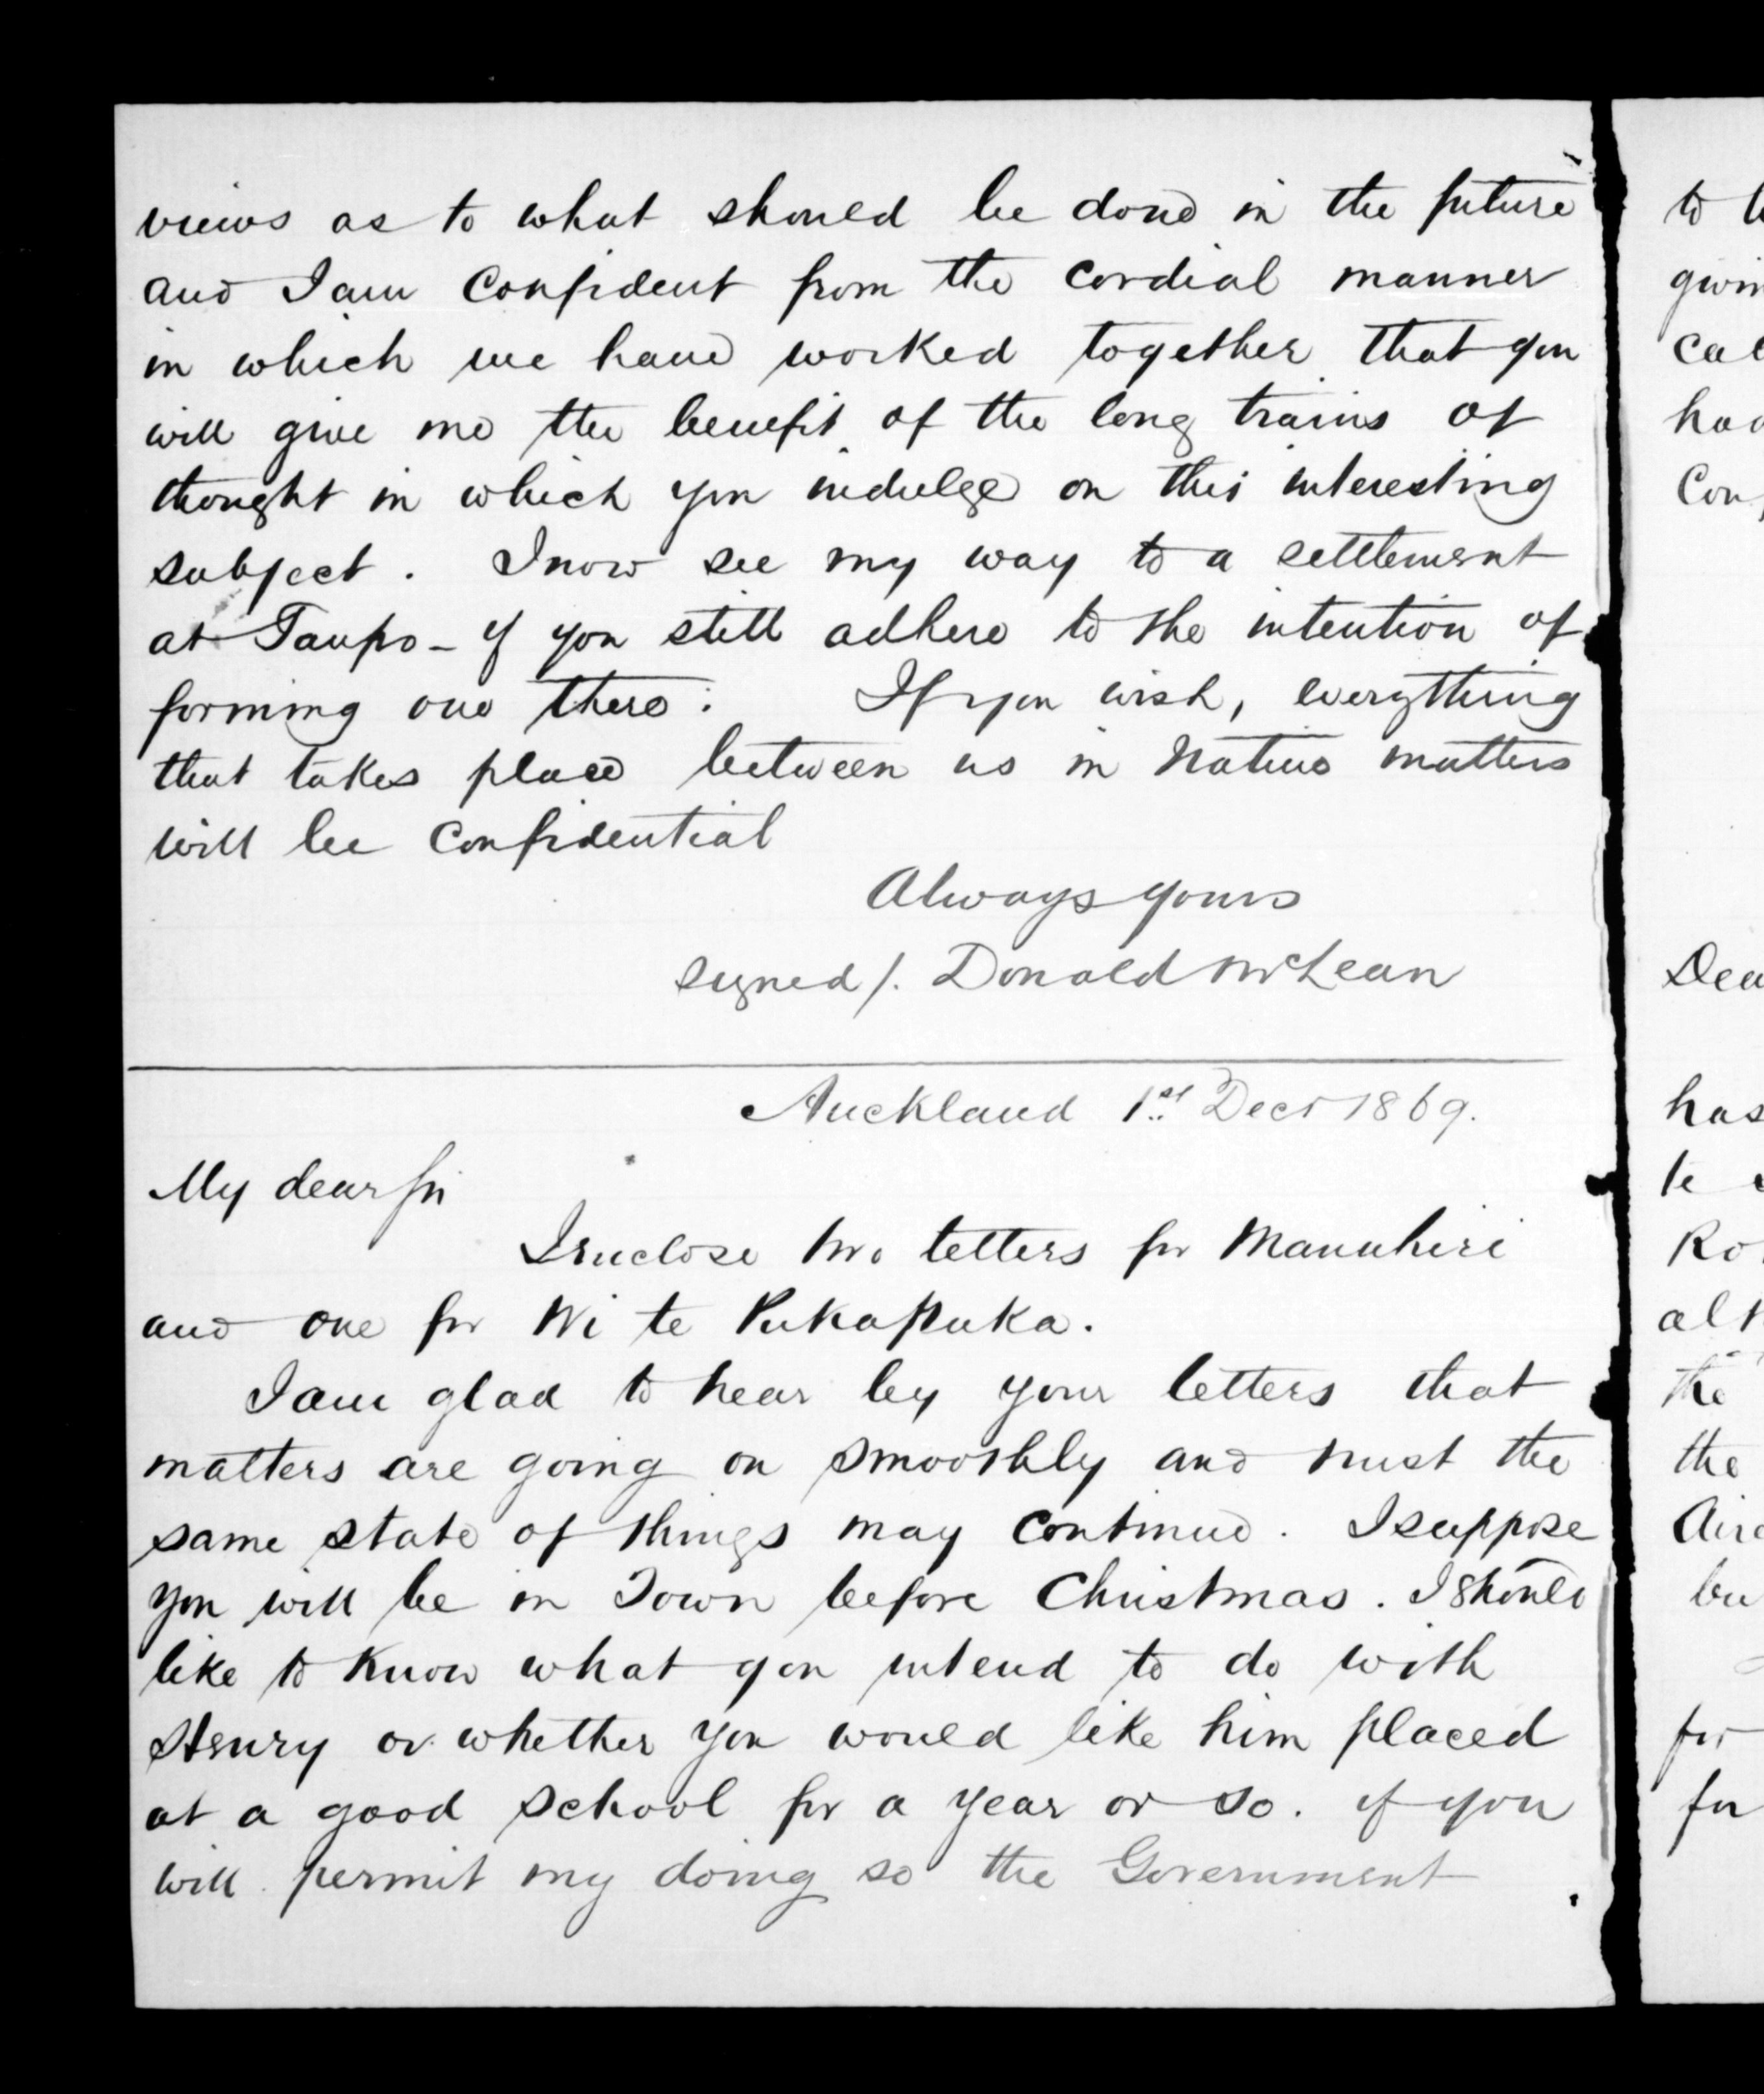 views as to what should be done in the future
and I am confident from the cordial manner
in which we have worked together that you
will give me the benefit of the long trains of
thought in which you indulge on this interesting
subject. I now see my way to a settlement
at Taupo - if you still adhere to the intention of
forming one there: If you wish, everything
that takes place between us in Native matters
will be confidential
Always yours
signed/. Donald McLean
Auckland 1st Decr 1869.
My dear Sir
I enclose two letters for Manuhiri
and one for Wi te Pukapuka.
I am glad to hear by your letters that
matters are going on smoothly and trust the
same state of things may continue. I suppose
you will be in Town before Christmas. I should
like to know what you intend to do with
Henry or whether you would like him placed
at a good school for a year or so. if you
will permit my doing so the Government
to
Con
Dea
has
te
Ro
the
the
bu
for
for